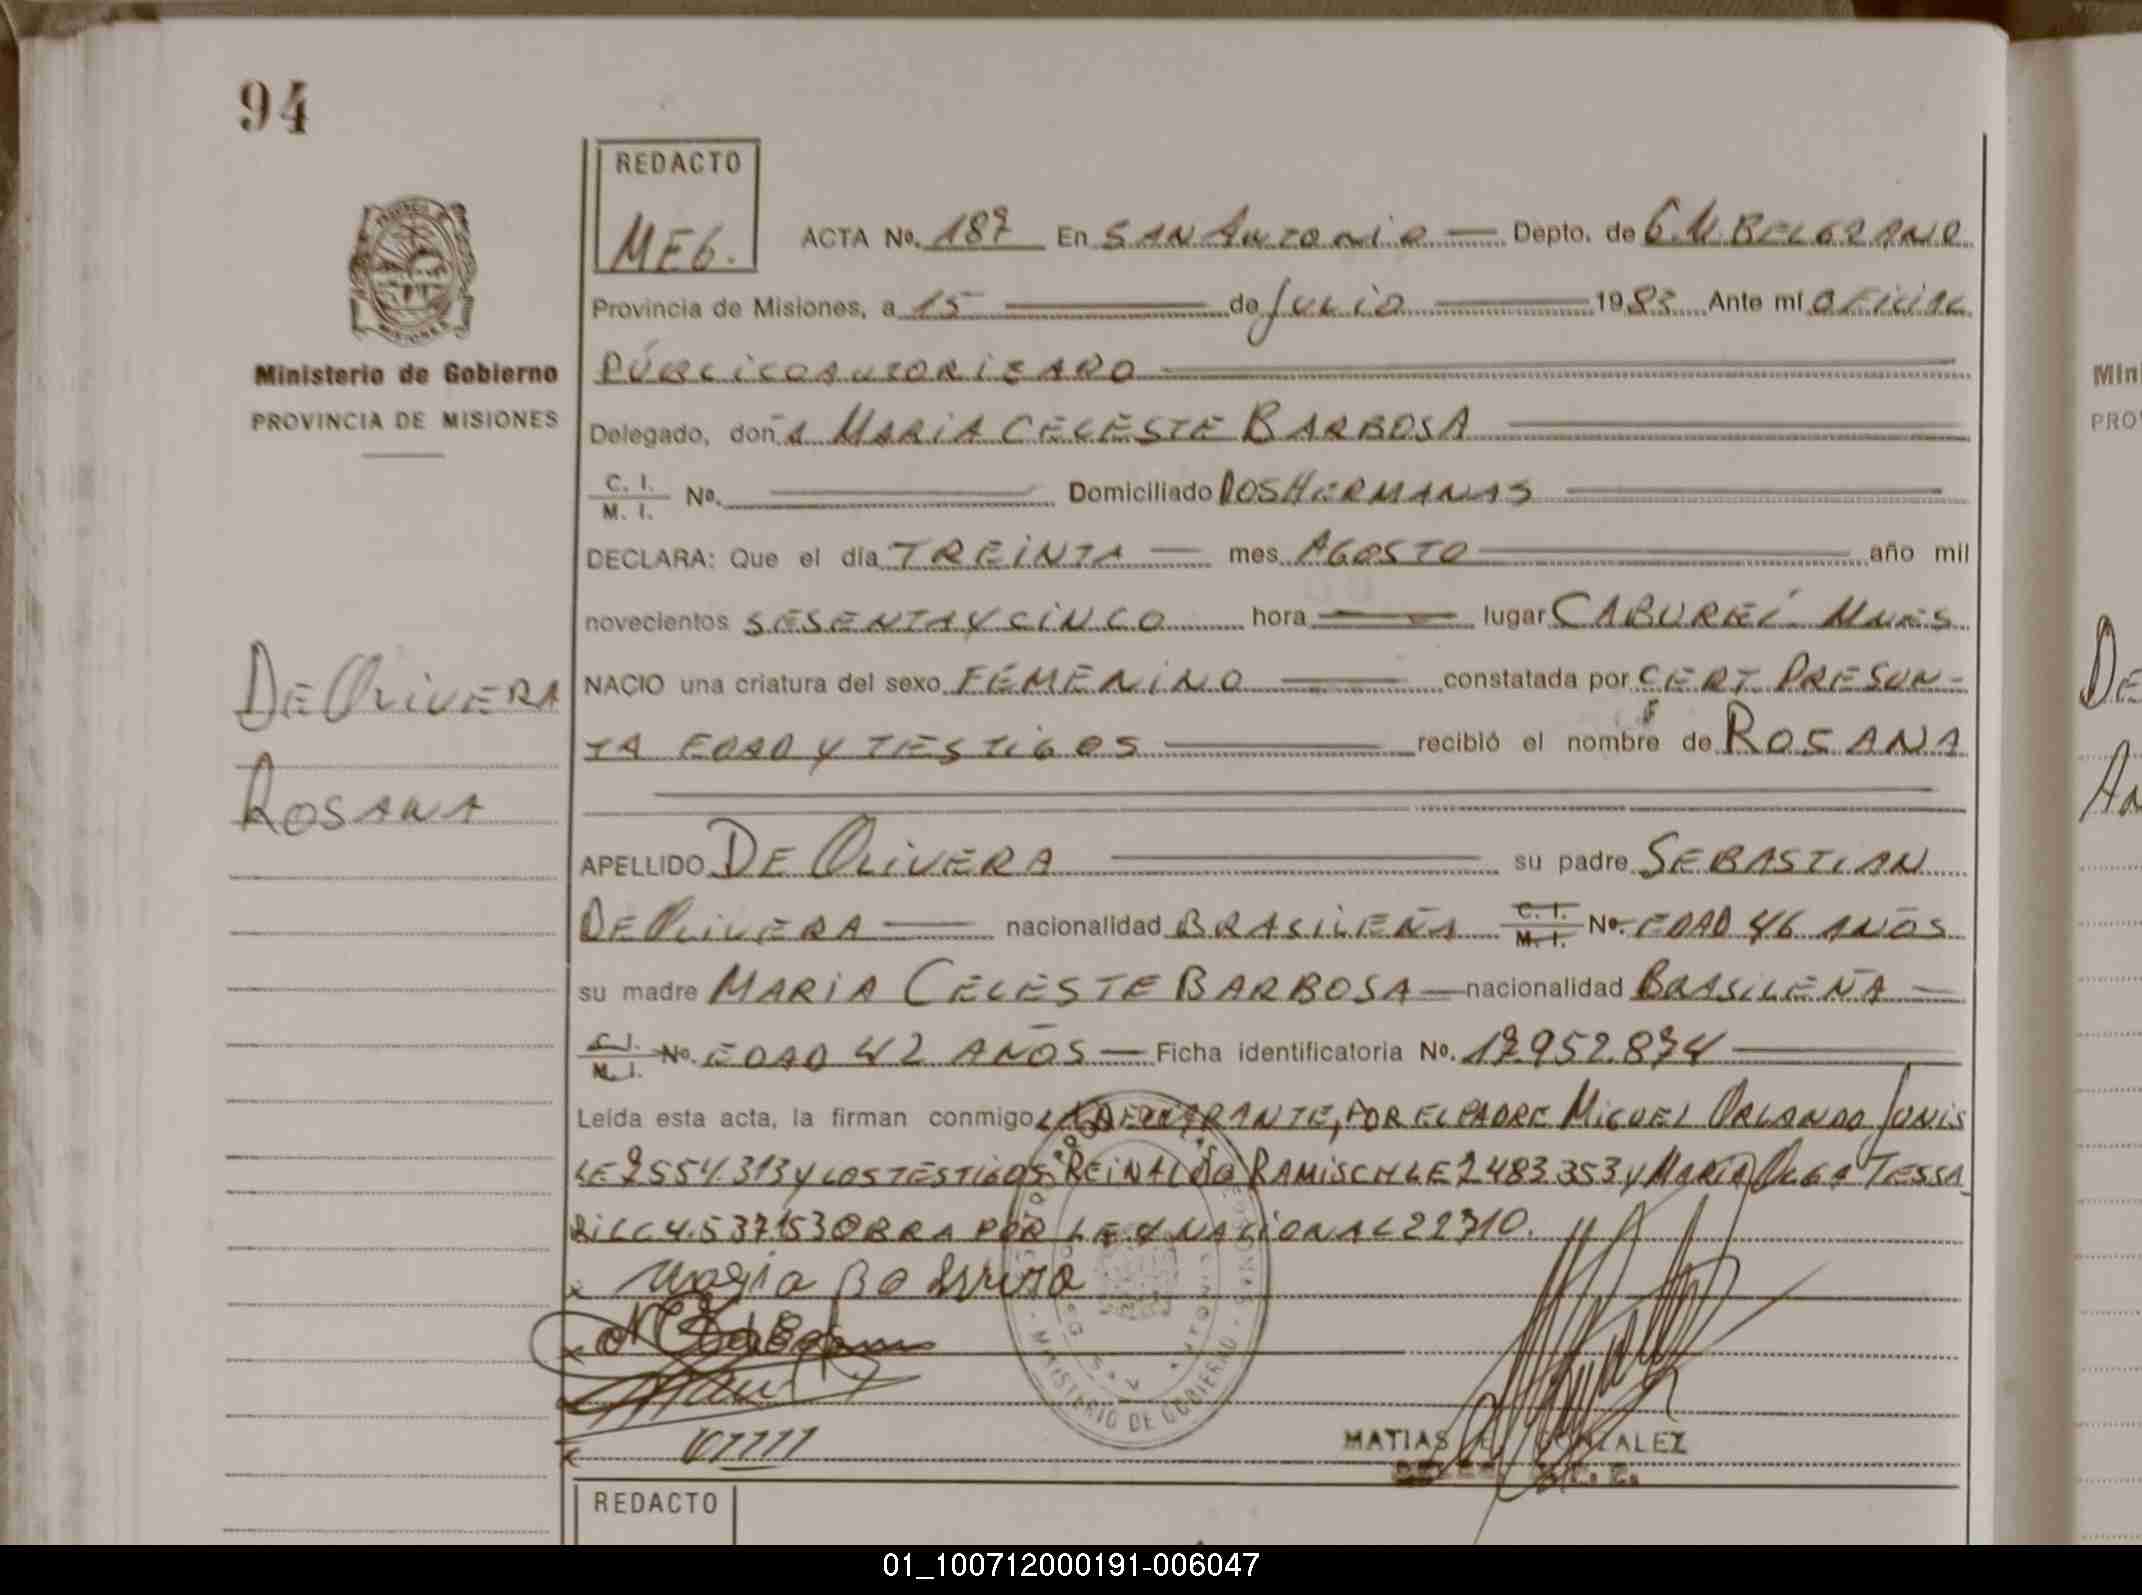 94
REDACTO
MEG.
ACTA No. 187 En SAN ANTONIO Depto. de G.M. BELGRANO
Provincia de Misiones, a 15 de JULIO 1983 Ante mí OFICIAL
PÚBLICO AUTORIZADO
Ministerio de Gobierno
PROVINCIA DE MISIONES
Delegado, doña MARIA CELESTE BARBOSA
C. I.
M. I. No. Domiciliado DOS HERMANAS
DECLARA: Que el día TREINTA mes AGOSTO año mil
novecientos SESENTA Y CINCO hora lugar CABUREÍ
NACIO una criatura del sexo FEMENINO constatada por CERT. PRESUN-
TA EDAD Y TESTIGOS recibió el nombre de ROSANA
DE OLIVERA
ROSANA
APELLIDO DE OLIVERA su padre SEBASTIAN
DE OLIVERA nacionalidad BRASILEÑA C. I. M. I. No. EDAD 46 AÑOS
su madre MARIA CELESTE BARBOSA nacionalidad BRASILEÑA
C. I. M. I. No. EDAD 42 AÑOS Ficha identificatoria No. 17.952.874
Leída esta acta, la firman conmigo LA DECLARANTE, POR EL PADRE MIGUEL ORLANDO
LE 7554.313 Y LOS TESTIGOS REINALDO RAMISCH LE 7483.353 Y MARIA OLGA TESSA
RI LC 4.537153 OBRA POR LEY NACIONAL 22710.
MINISTERIO DE GOBIERNO
MATIAS GONZALEZ
REDACTO
01_100712000191-006047